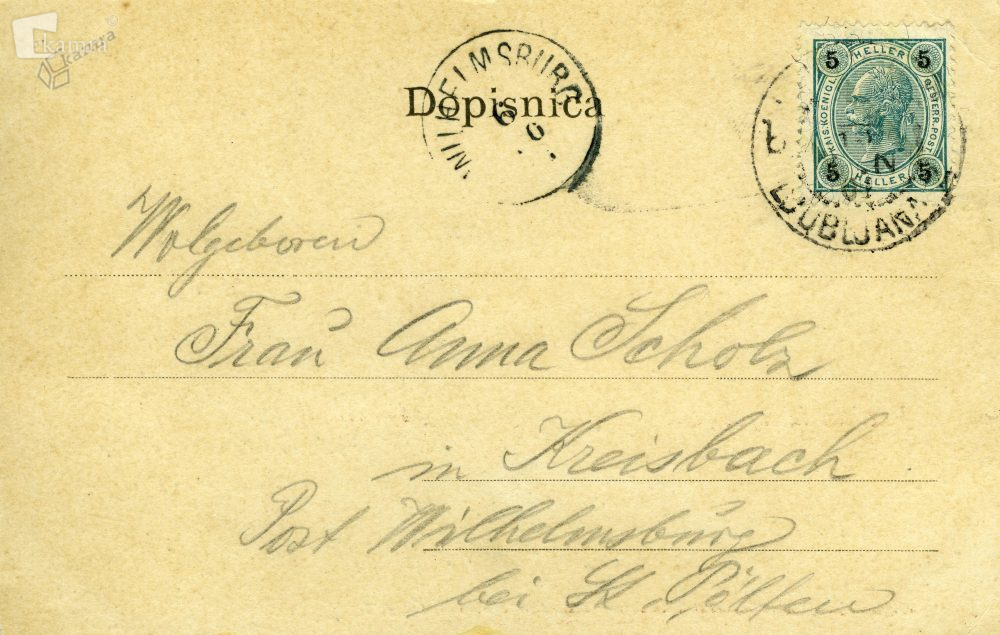 kamra
Dopisnica
WILHELMSBURG
6 6
5 HELLER 5
KAIS. KOENIGL. OESTERR. POST
5 HELLER 5
LJUBLJANA
Wolgeboren
Frau Anna Scholz
in Kreisbach
Post Wilhelmsburg
bei St. Pölten